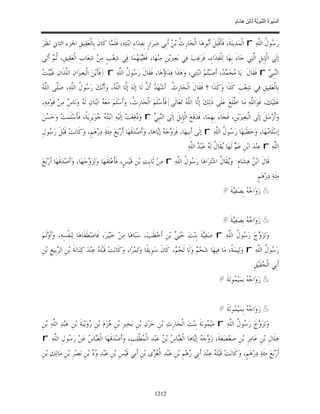 السيرة النبوية لابن هشام
رَسُولُ اللّهِ r الْمَدِينَةَ، فَأَقْبَلَ أَبُوهَا الْحَارِثُ بْنُ أَبِي ضِرَارٍ بِفِدَاءِ ابْنَتِهِ، فَلَمَّا كَانَ بِالْعَقِيقِ الجزء الثاني نَظَرَ
إلَى الْإِبِلِ الَّتِي جَاءَ بِهَا لِلْفِدَاءِ، فَرَغِبَ فِي بَعِيرَيْنِ مِنْهَا، فَغَيَّبَهُمَا فِي شِعْبٍ مِنْ شِعَابِ الْعَقِيقِ، ثُمَّ أَتَى
النَّبِيَّ r فَقَالَ: يَا مُحَمَّدُ، أَصَبْتُمْ ابْنَتِي، وَهَذَا فِدَاؤُهَا، فَقَالَ رَسُولُ اللّهِ r فَأَيْنَ الْبَعِيرَانِ اللَّذَانِ غَيَّبْتَ
بِالْعَقِيقِ فِي شِعْبِ كَذَا وَكَذَا ؟ فَقَالَ الْحَارِثُ أَشْهَدُ أَنْ لَا إلَهَ إلَّا اللّهُ، وَأَنَّكَ رَسُولُ اللّهِ، صَلَّى اللّهُ
عَلَيْكَ، فَوَاللّهِ مَا اطَّلَعَ عَلَى ذَلِكَ إلَّا اللّهُ تَعَالَى فَأَسْلَمَ الْحَارِثُ، وَأَسْلَمَ مَعَهُ ابْنَانِ لَهُ وَنَاسٌ مِنْ قَوْمِهِ،
وَأَرْسَلَ إلَى الْبَعِيرَيْنِ، فَجَاءَ بِهِمَا، فَدَفَعَ الْإِبِلَ إلَى النَّبِيِّ r وَدُفِعَتْ إلَيْهِ ابْنَتُهُ جُوَيْرِيَةُ، فَأَسْلَمَتْ وَحَسُنَ
إسْلَامُهَا، وَخَطَبَهَا رَسُولُ اللّهِ r إلَى أَبِيهَا، فَزَوَّجَهُ إيَّاهَا، وَأَصْدَقَهَا أَرْبَعَ مِئَةِ دِرْهَمٍ، وَكَانَتْ قَبْلَ رَسُولِ
اللّهِ r عِنْدَ ابْنِ عَمٍّ لَهَا يُقَالُ لَهُ عَبْدُ اللّهِ
قَالَ ابْنُ هِشَامٍ: وَيُقَالُ اشْتَرَاهَا رَسُولُ اللّهِ r مِنْ ثَابِتِ بْنِ قَيْسٍ، فَأَعْتَقَهَا وَتَزَوَّجَهَا، وَأَصْدَقَهَا أَرْبَعَ
مِئَةِ دِرْهَمٍ
& زَوَاجُهُ بِصَفِيَّةَ #
& زَوَاجُهُ بِصَفِيَّةَ #
وَتَزَوَّجَ رَسُولُ اللّهِ r صَفِيَّةَ بِنْتَ حُيَيِّ بْنِ أَخْطَبَ، سَبَاهَا مِنْ خَيْبَرَ، فَاصْطَفَاهَا لِنَفْسِهِ، وَأَوْلَمَ
رَسُولُ اللّهِ r وَلِيمَةً، مَا فِيهَا شَحْمٌ وَلَا لَحْمٌ، كَانَ سَوِيقًا وَتَمْرًا، وَكَانَتْ قَبْلَهُ عِنْدَ كِنَانَةَ بْنِ الرَّبِيعِ بْنِ
أَبِي الْحُقَيْقِ
& زَوَاجُهُ بِمَيْمُونَةَ #
& زَوَاجُهُ بِمَيْمُونَةَ #
وَتَزَوَّجَ رَسُولُ اللّهِ r مَيْمُونَةَ بِنْتَ الْحَارِثِ بْنِ حَزْنِ بْنِ بَحِيرِ بْنِ هُزَمَ بْنِ رُوَيْبَةَ بْنِ عَبْدِ اللّهِ بْنِ
هِلَالِ بْنِ عَامِرِ بْنِ صَعْصَعَةَ، زَوَّجَهُ إيَّاهَا الْعَبَّاسُ بْنُ عَبْدِ الْمُطَّلِبِ، وَأَصْدَقَهَا الْعَبَّاسُ عَنْ رَسُولِ اللّهِ r
أَرْبَعَ مِئَةِ دِرْهَمٍ، وَكَانَتْ قَبْلَهُ عِنْدَ أَبِي رُهْمِ بْنِ عَبْدِ الْعُزَّى بْنِ أَبِي قَيْسِ بْنِ عَبْدِ وُدِّ بْنِ نَصْرِ بْنِ مَالِكِ بْنِ
1212